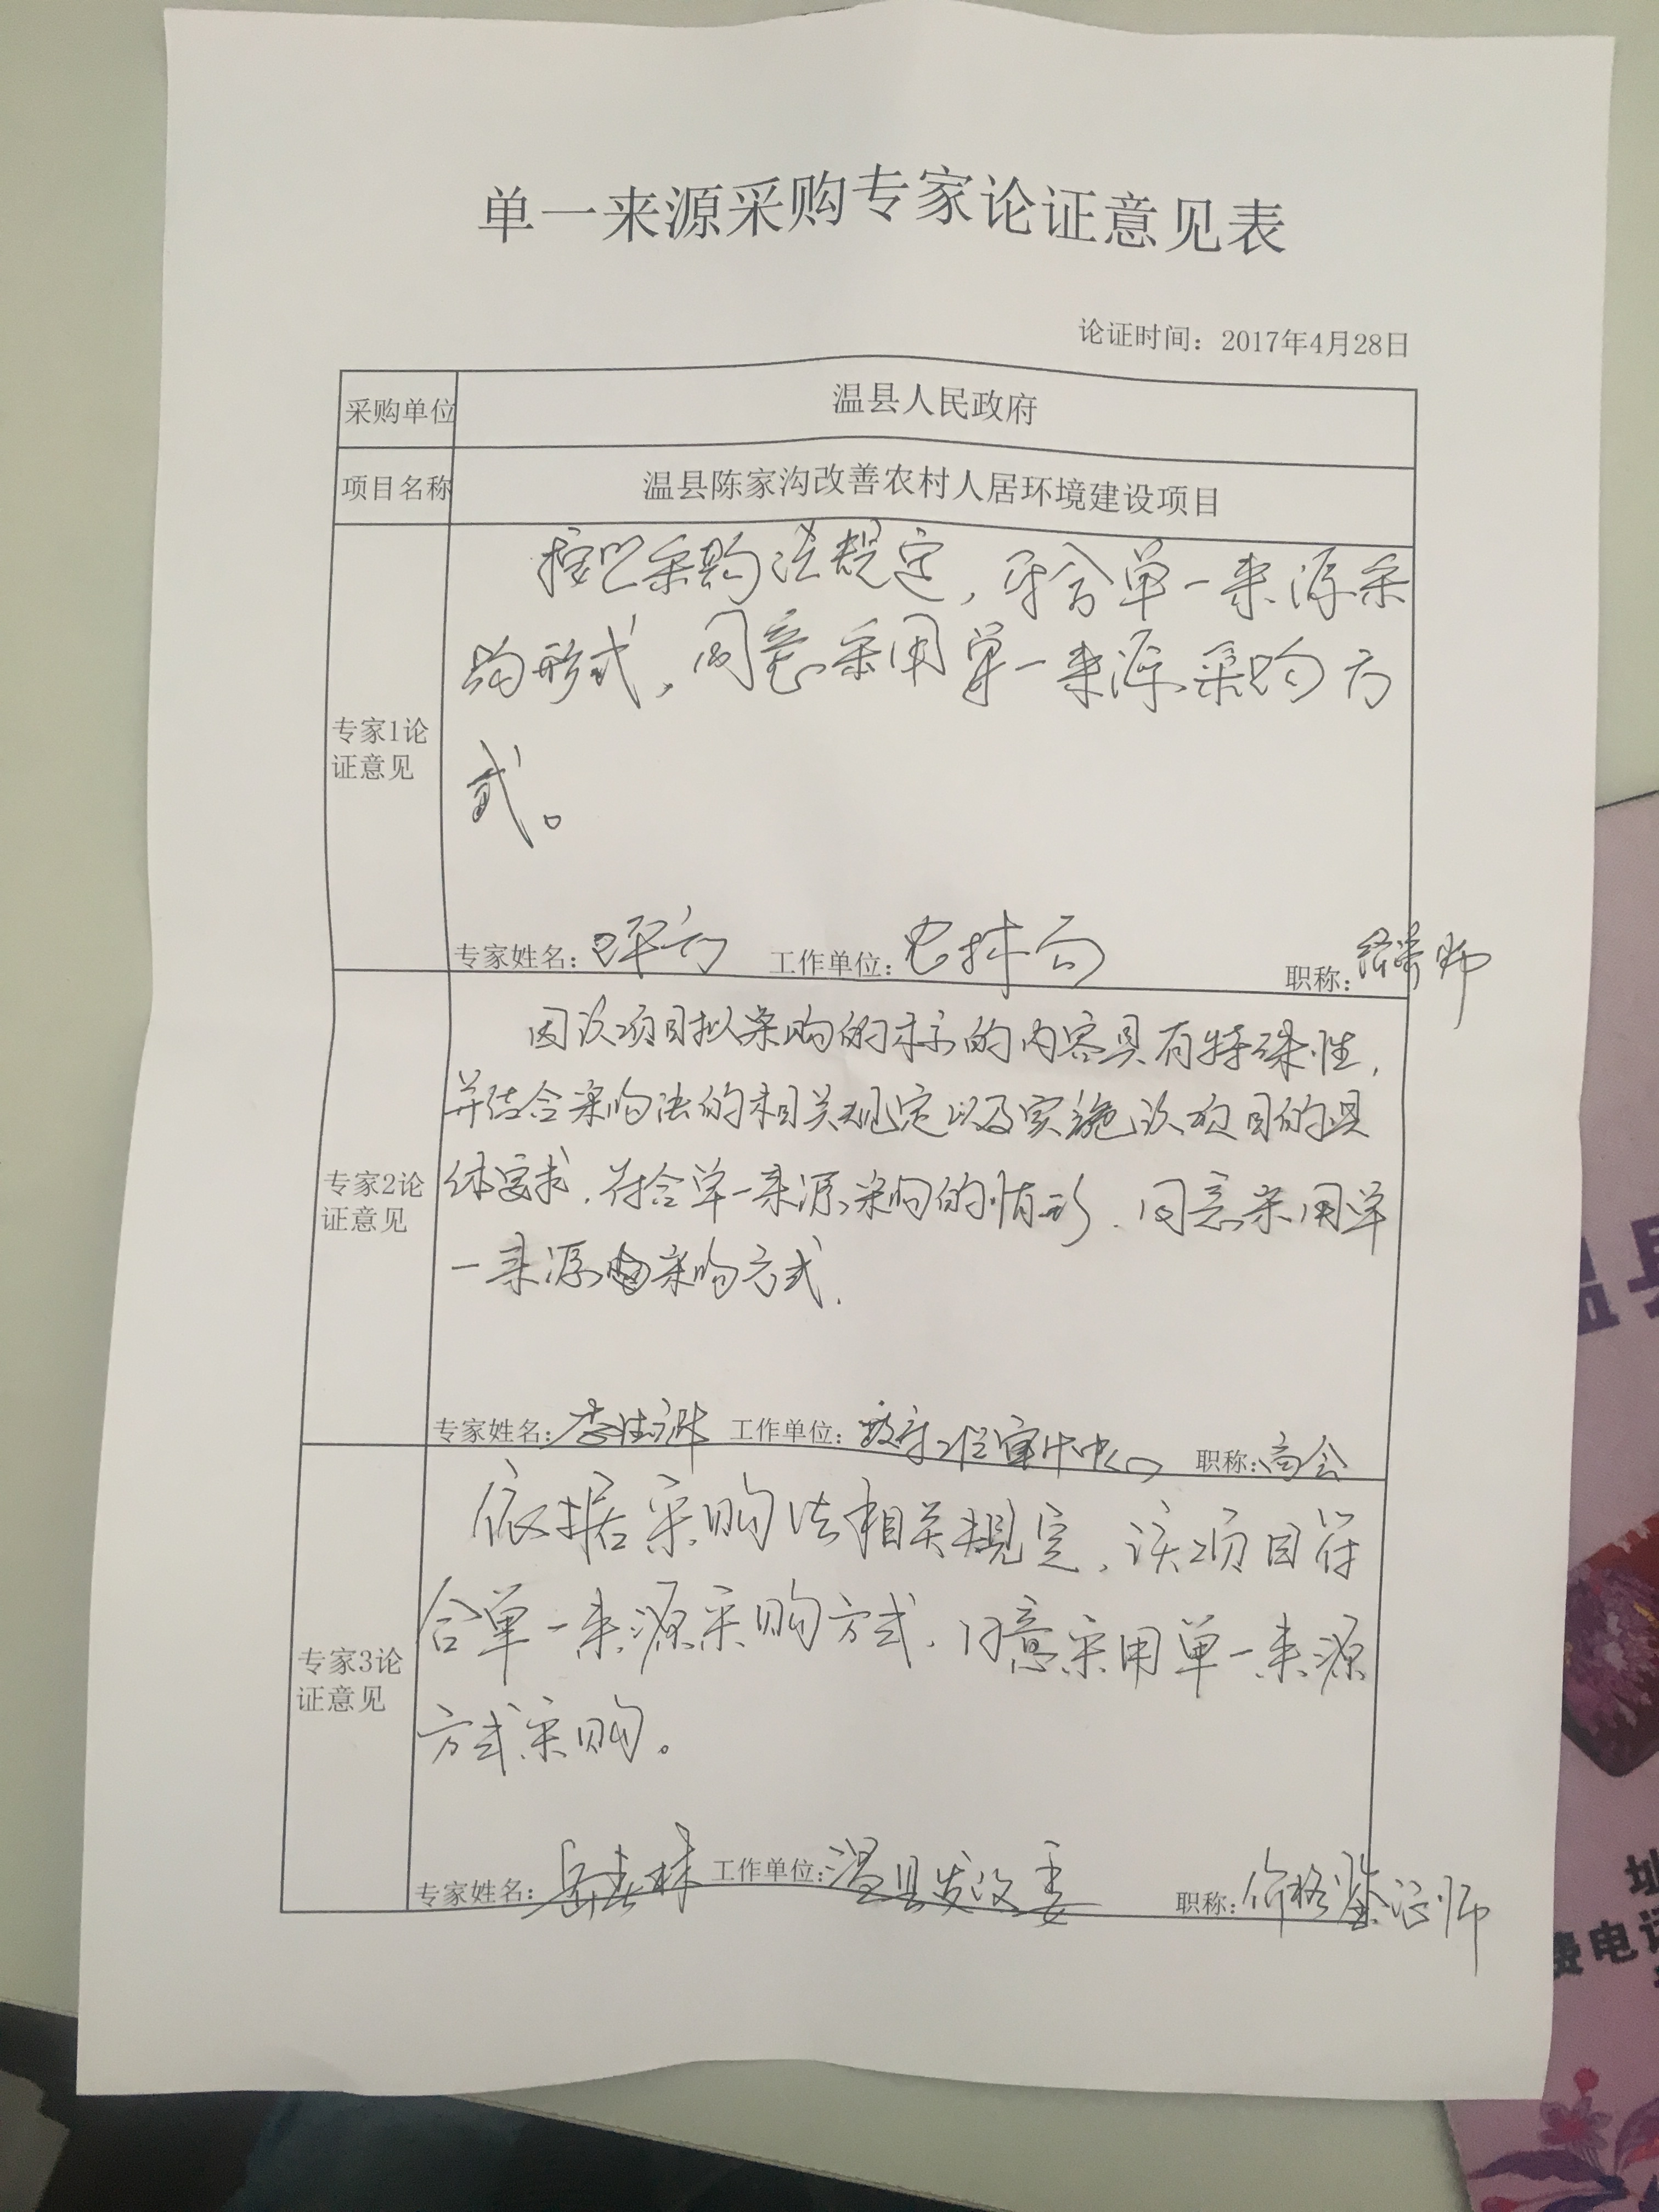 单一来源采购专家论证意见表
论证时间：2017年4月28日
采购单位
温县人民政府
项目名称
温县陈家沟改善农村人居环境建设项目
专家1论
证意见
按照采购法规定，符合单一来源采
购形式，同意采用单一来源采购方
式。
专家姓名：
工作单位：农林局
职称：经济师
专家2论
证意见
因该项目拟采购的标的内容具有特殊性，
并结合采购法的相关规定以及实施该项目的具
体要求，符合单一来源采购的情形，同意采用单
一来源采购方式.
专家姓名：李
工作单位：政府投资审计中心
职称：高会
专家3论
证意见
依据采购法相关规定，该项目符
合单一来源采购方式，同意采用单一来源
方式采购。
专家姓名：岳春林
工作单位：温县发改委
职称：价格鉴证师
温县
址
费电话